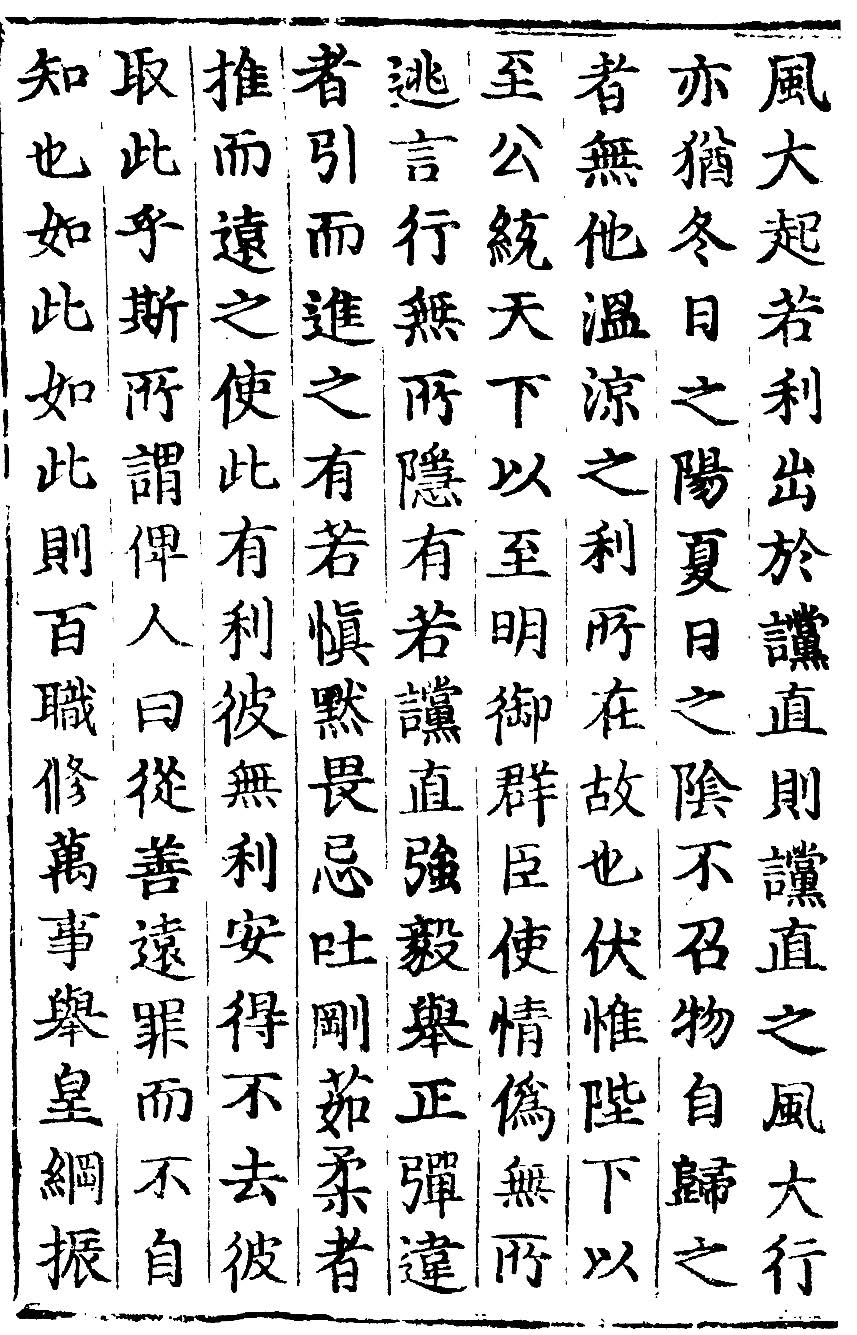 風大起若利出於讜直則讜直之風大行
亦猶冬日之陽夏日之陰不召物自歸之
者無他溫涼之利所在故也伏惟陛下以
至公統天下以至明御群臣使情僞無所
逃言行無所隱有若讜直強毅舉正彈違
者引而進之有若愼默畏忌吐剛茹柔者
推而遠之使此有利彼無利安得不去彼
取此乎斯所謂俾人日從善遠罪而不自
知也如此如此則百職修萬事舉皇綱振